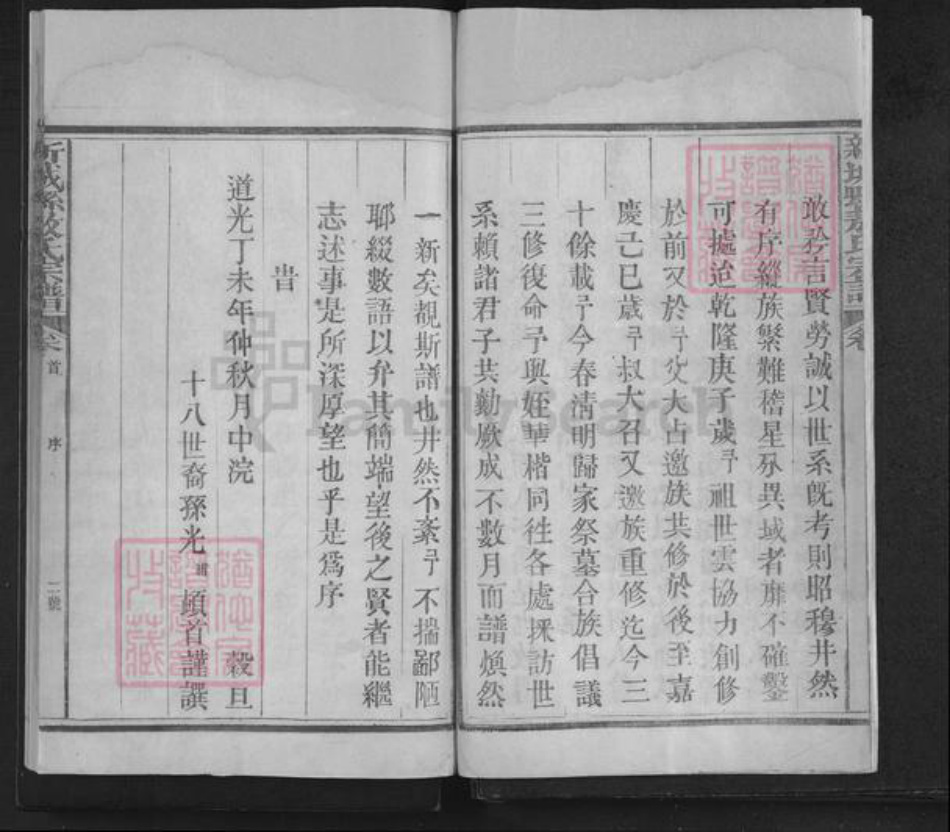 敢矜言賢勞誠以世系旣考則昭穆井然
有序縱族繁難稽星㪚異域者靡不確鑿
可據迨乾隆庚子歲予祖世雲協力創修
於前又於予父大占邀族共修於後至嘉
慶己巳歲予叔大召又邀族重修迄今三
十餘載予今春清明歸家祭墓合族倡議
三修復命予與姪華楷同徃各處採訪世
系賴諸君子共勷厥成不數月而譜煥然
一新矣覩斯譜也井然不紊予不揣鄙陋
聊綴數語以弁其簡端望後之賢者能繼
志述事是所深厚望也乎是爲序
旹
道光丁未年仲秋月中浣 穀旦
十八世裔孫光 頓首謹譔
新城縣敖氏宗譜 卷 首 序 二號
FamilySearch